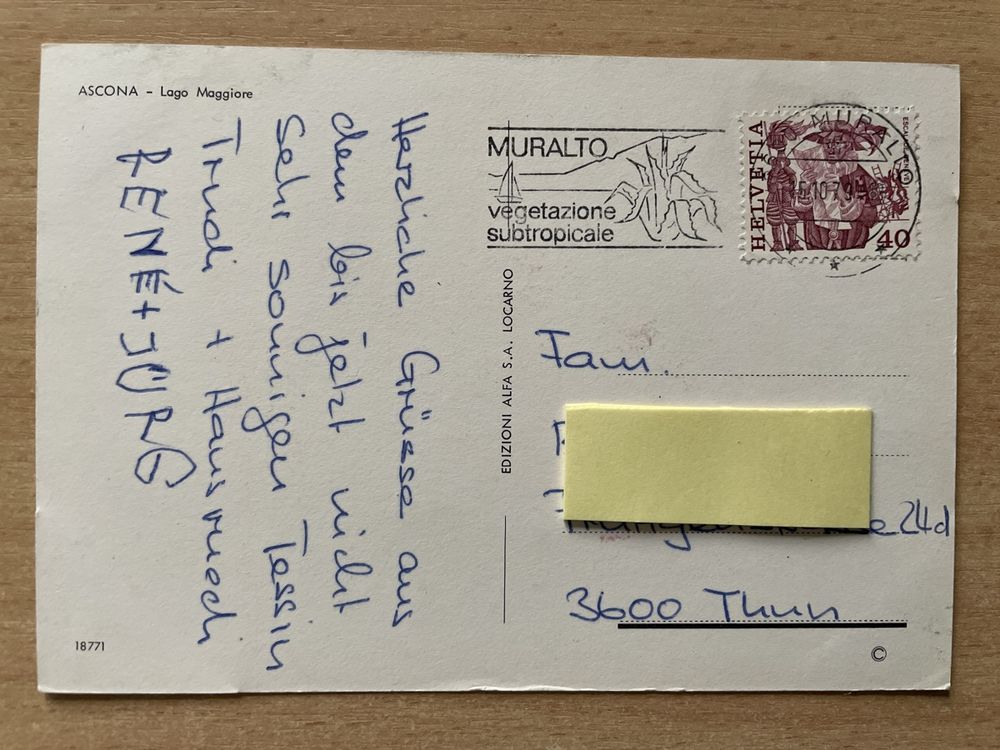 ASCONA – Lago Maggiore
Herzliche Grüsse aus
dem bis jetzt nicht
sehr sonnigen Tessin
Trudi + Hansruedi
RENÉ + JÜRG
18771
EDIZIONI ALFA S.A. LOCARNO
MURALTO
vegetazione
subtropicale
MURALTO
HELVETIA
40
Fam.
24d
3600 Thun
©